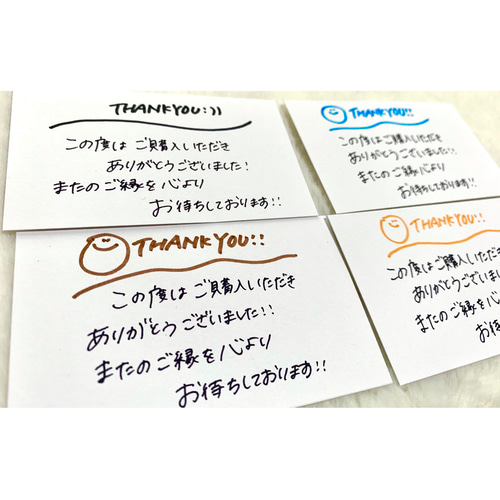 THANKYOU:))
この度は ご購入いただき
ありがとうございました!
またのご縁を心より
お待ちしております!!
THANKYOU!!
この度は ご購入いただき
ありがとうございました!!
またのご縁を心より
お待ちしております!!
THANKYOU!!
この度は ご購入いただき
ありがとうございました!!
またのご縁を心より
お待ちしております!!
THANKYOU!!
この度は ご購入いただき
ありがとうございました
またのご縁を心
お待